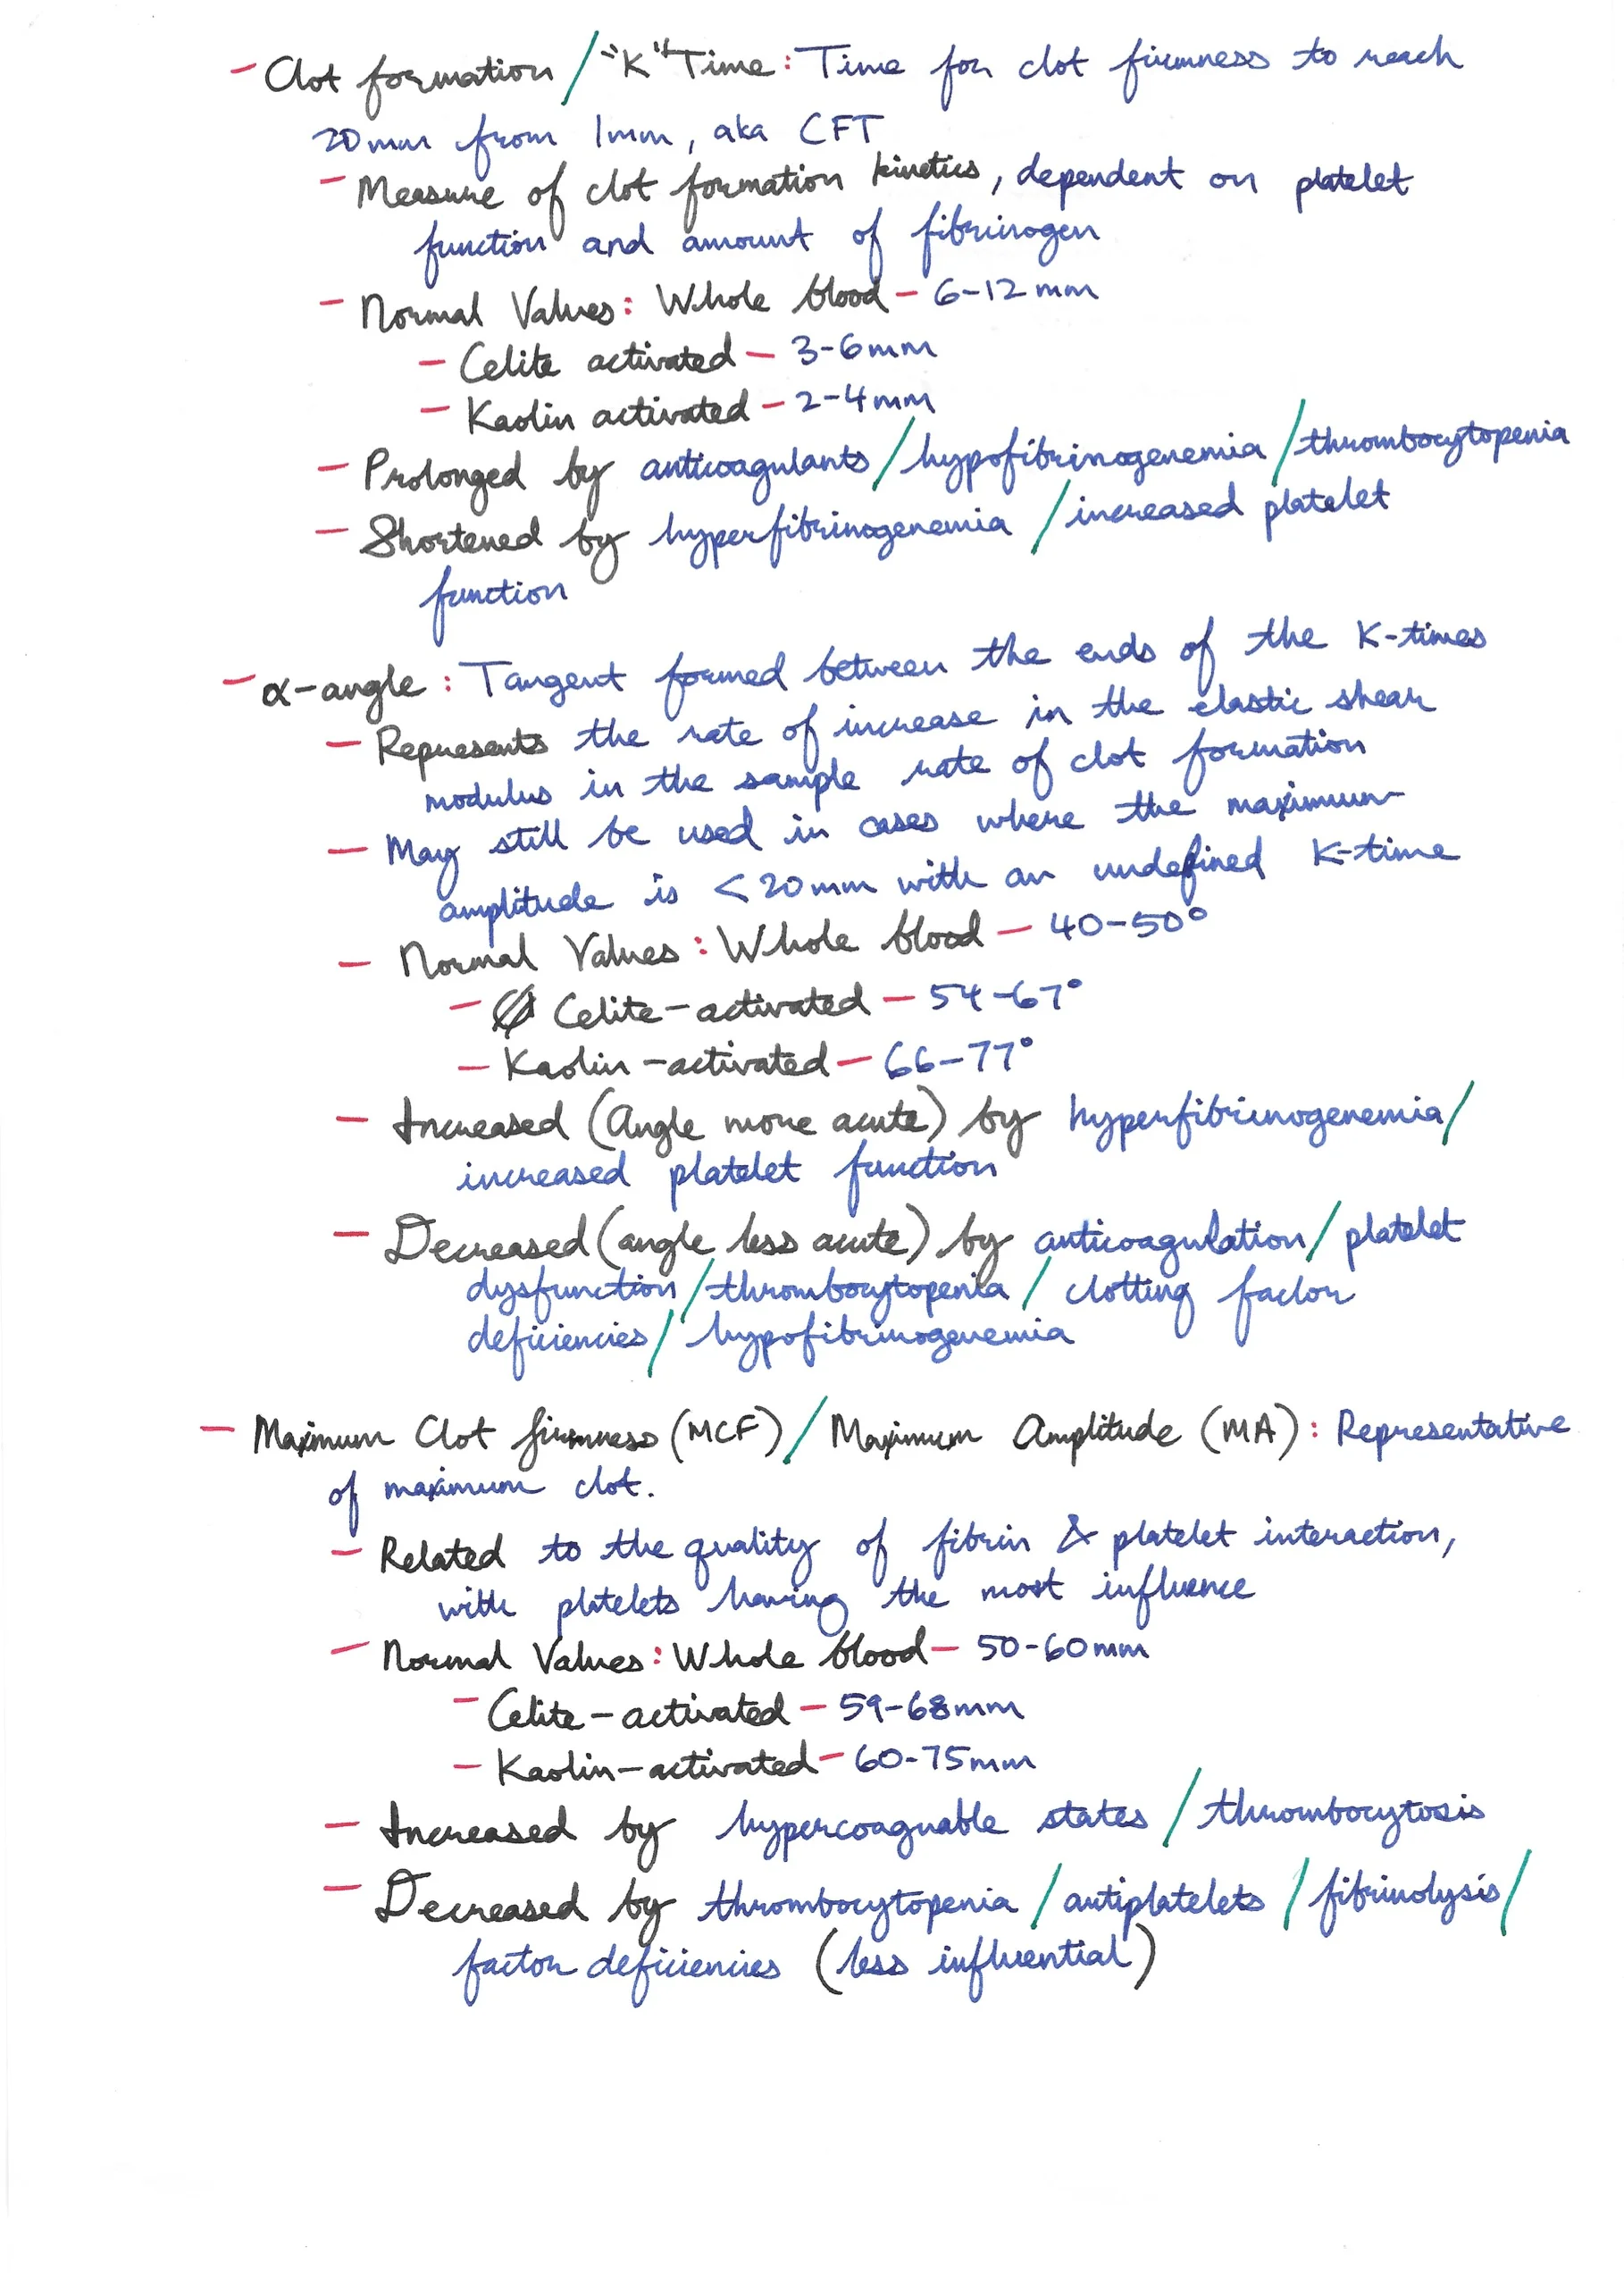 - Clot formation / "K" Time : Time for clot firmness to reach
20mm from 1mm, aka CFT
- Measure of clot formation kinetics, dependent on platelet
function and amount of fibrinogen
- Normal Values : Whole blood - 6-12mm
- Celite activated - 3-6mm
- Kaolin activated - 2-4mm
- Prolonged by anticoagulants / hypofibrinogenemia / thrombocytopenia
- Shortened by hyperfibrinogenemia / increased platelet
function
- α-angle : Tangent formed between the ends of the K-times
- Represents the rate of increase in the elastic shear
modulus in the sample rate of clot formation
- May still be used in cases where the maximum
amplitude is <20mm with an undefined K-time
- Normal Values : Whole blood - 40-50°
- Celite-activated - 54-67°
- Kaolin-activated - 66-77°
- Increased (Angle more acute) by hyperfibrinogenemia /
increased platelet function
- Decreased (angle less acute) by anticoagulation / platelet
dysfunction / thrombocytopenia / clotting factor
deficiencies / hypofibrinogenemia
- Maximum Clot firmness (MCF) / Maximum Amplitude (MA) : Representative
of maximum clot.
- Related to the quality of fibrin & platelet interaction,
with platelets having the most influence
- Normal Values : Whole blood - 50-60mm
- Celite-activated - 59-68mm
- Kaolin-activated - 60-75mm
- Increased by hypercoaguable states / thrombocytosis
- Decreased by thrombocytopenia / antiplatelets / fibrinolysis /
factor deficiencies (less influential)